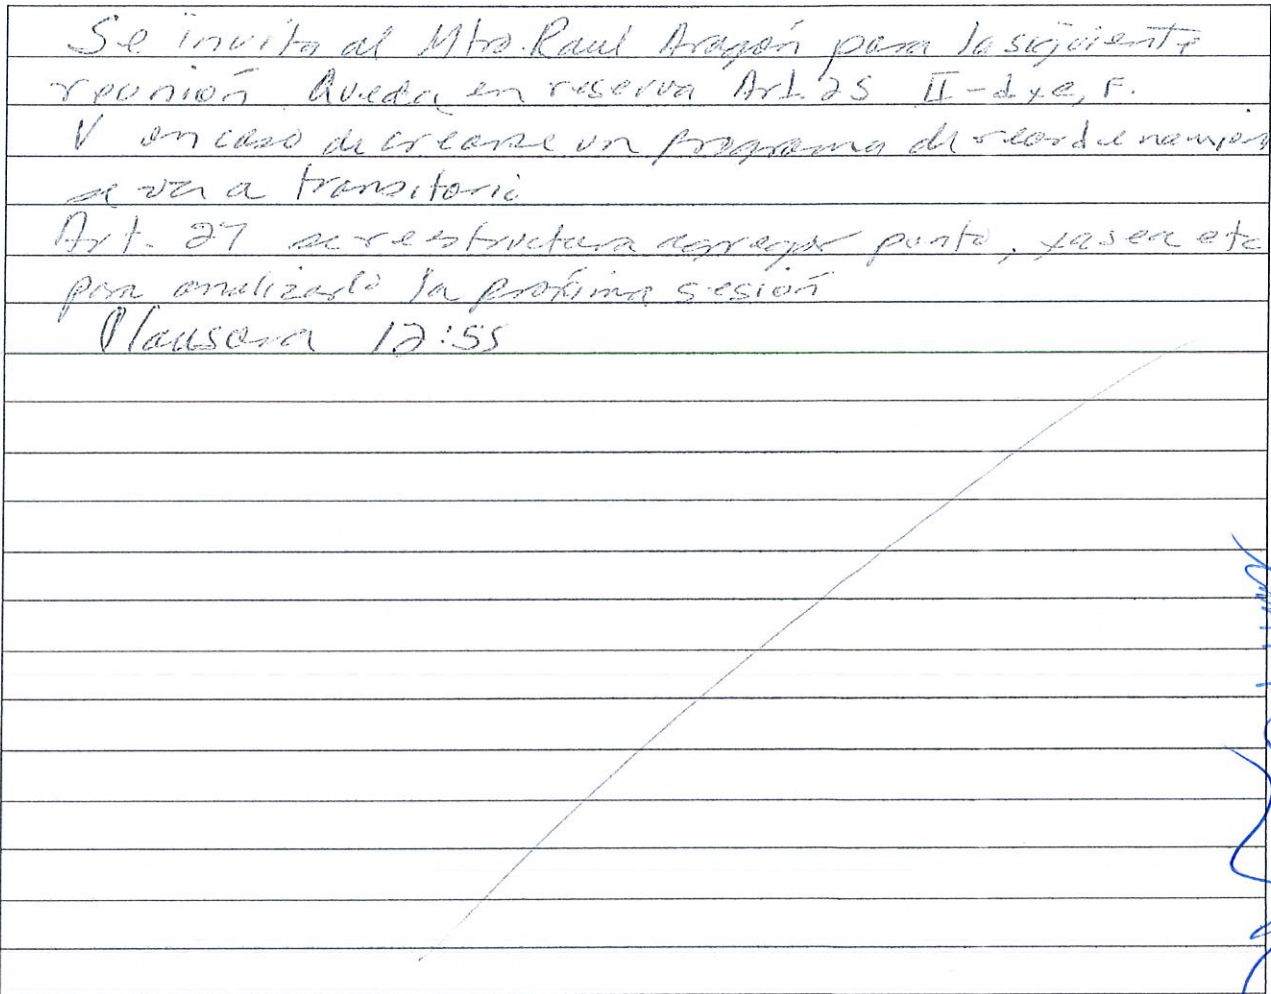 Se invita al Mtro. Raul Aragón para la siguiente
reunión Queda en reserva Art. 25 II-d y e, F.
V en caso de crearse un programa de reordenamien
se va a transitorio
Art. 27 se reestructura agregar punto, ya sea etc
para analizarlo la próxima sesión
Clausura 12:55